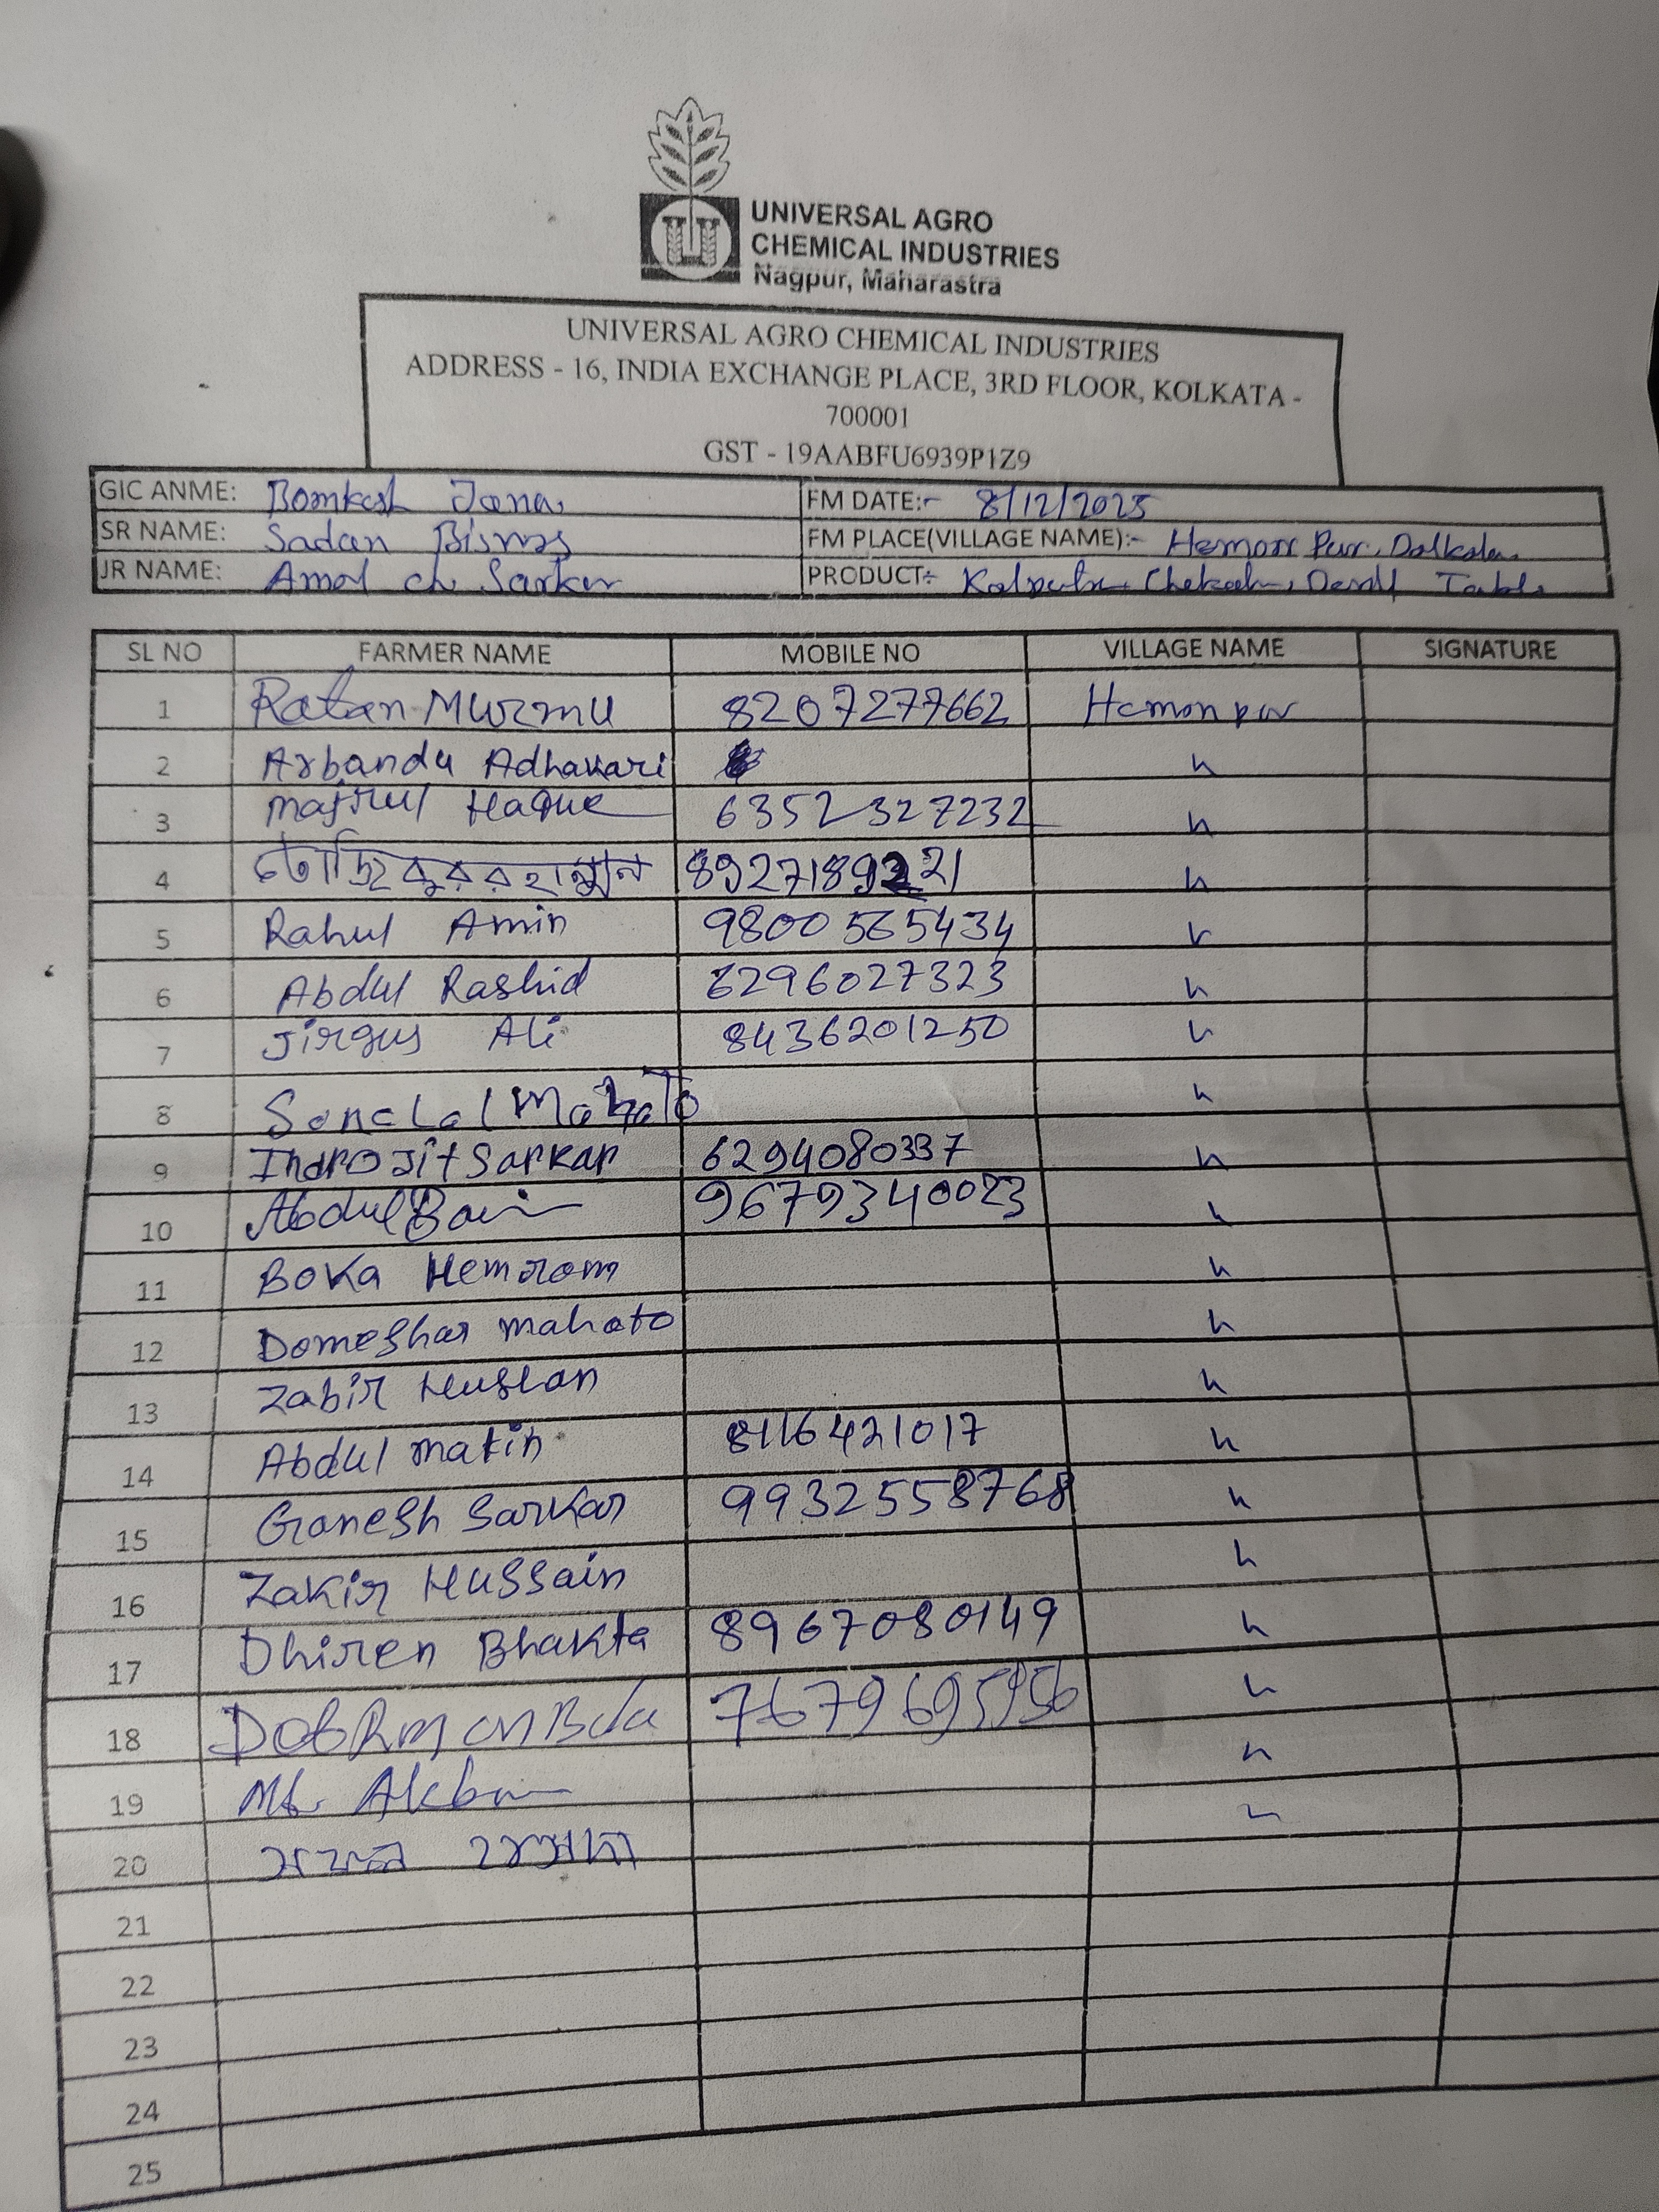 UNIVERSAL AGRO
CHEMICAL INDUSTRIES
Nagpur, Maharastra
UNIVERSAL AGRO CHEMICAL INDUSTRIES
ADDRESS - 16, INDIA EXCHANGE PLACE, 3RD FLOOR, KOLKATA -
700001
GST - 19AABFU6939P1Z9
GIC ANME: Bomkesh Jana FM DATE:- 8/12/2025
SR NAME: Sadan Biswas FM PLACE(VILLAGE NAME):- Hemon Pur, Dalkola
JR NAME: Amol ch Sarkar PRODUCT:
SL NO FARMER NAME MOBILE NO VILLAGE NAME SIGNATURE
1 Ratan Murmu 8207277662 Hemonpur
2 Arbandu Adhakari "
3 Majirul Haque 6352327232 "
4 8927189221 "
5 Rahul Amin 9800565434 "
6 Abdul Rashid 6296027323 "
7 Jirgus Ali 8436201250 "
8 Sonalal Mahato "
9 Indrojit Sarkar 6294080337 "
10 Abdul 9679340023 "
11 Boka Hemrom "
12 Domeshar Mahato "
13 Zabir Hussan "
14 Abdul Matin 8116421017 "
15 Ganesh Sarkar 9932558768 "
16 Zakir Hussain "
17 Dhiren Bhakta 8967080149 "
18 "
19 Md. Akbar "
20
21
22
23
24
25